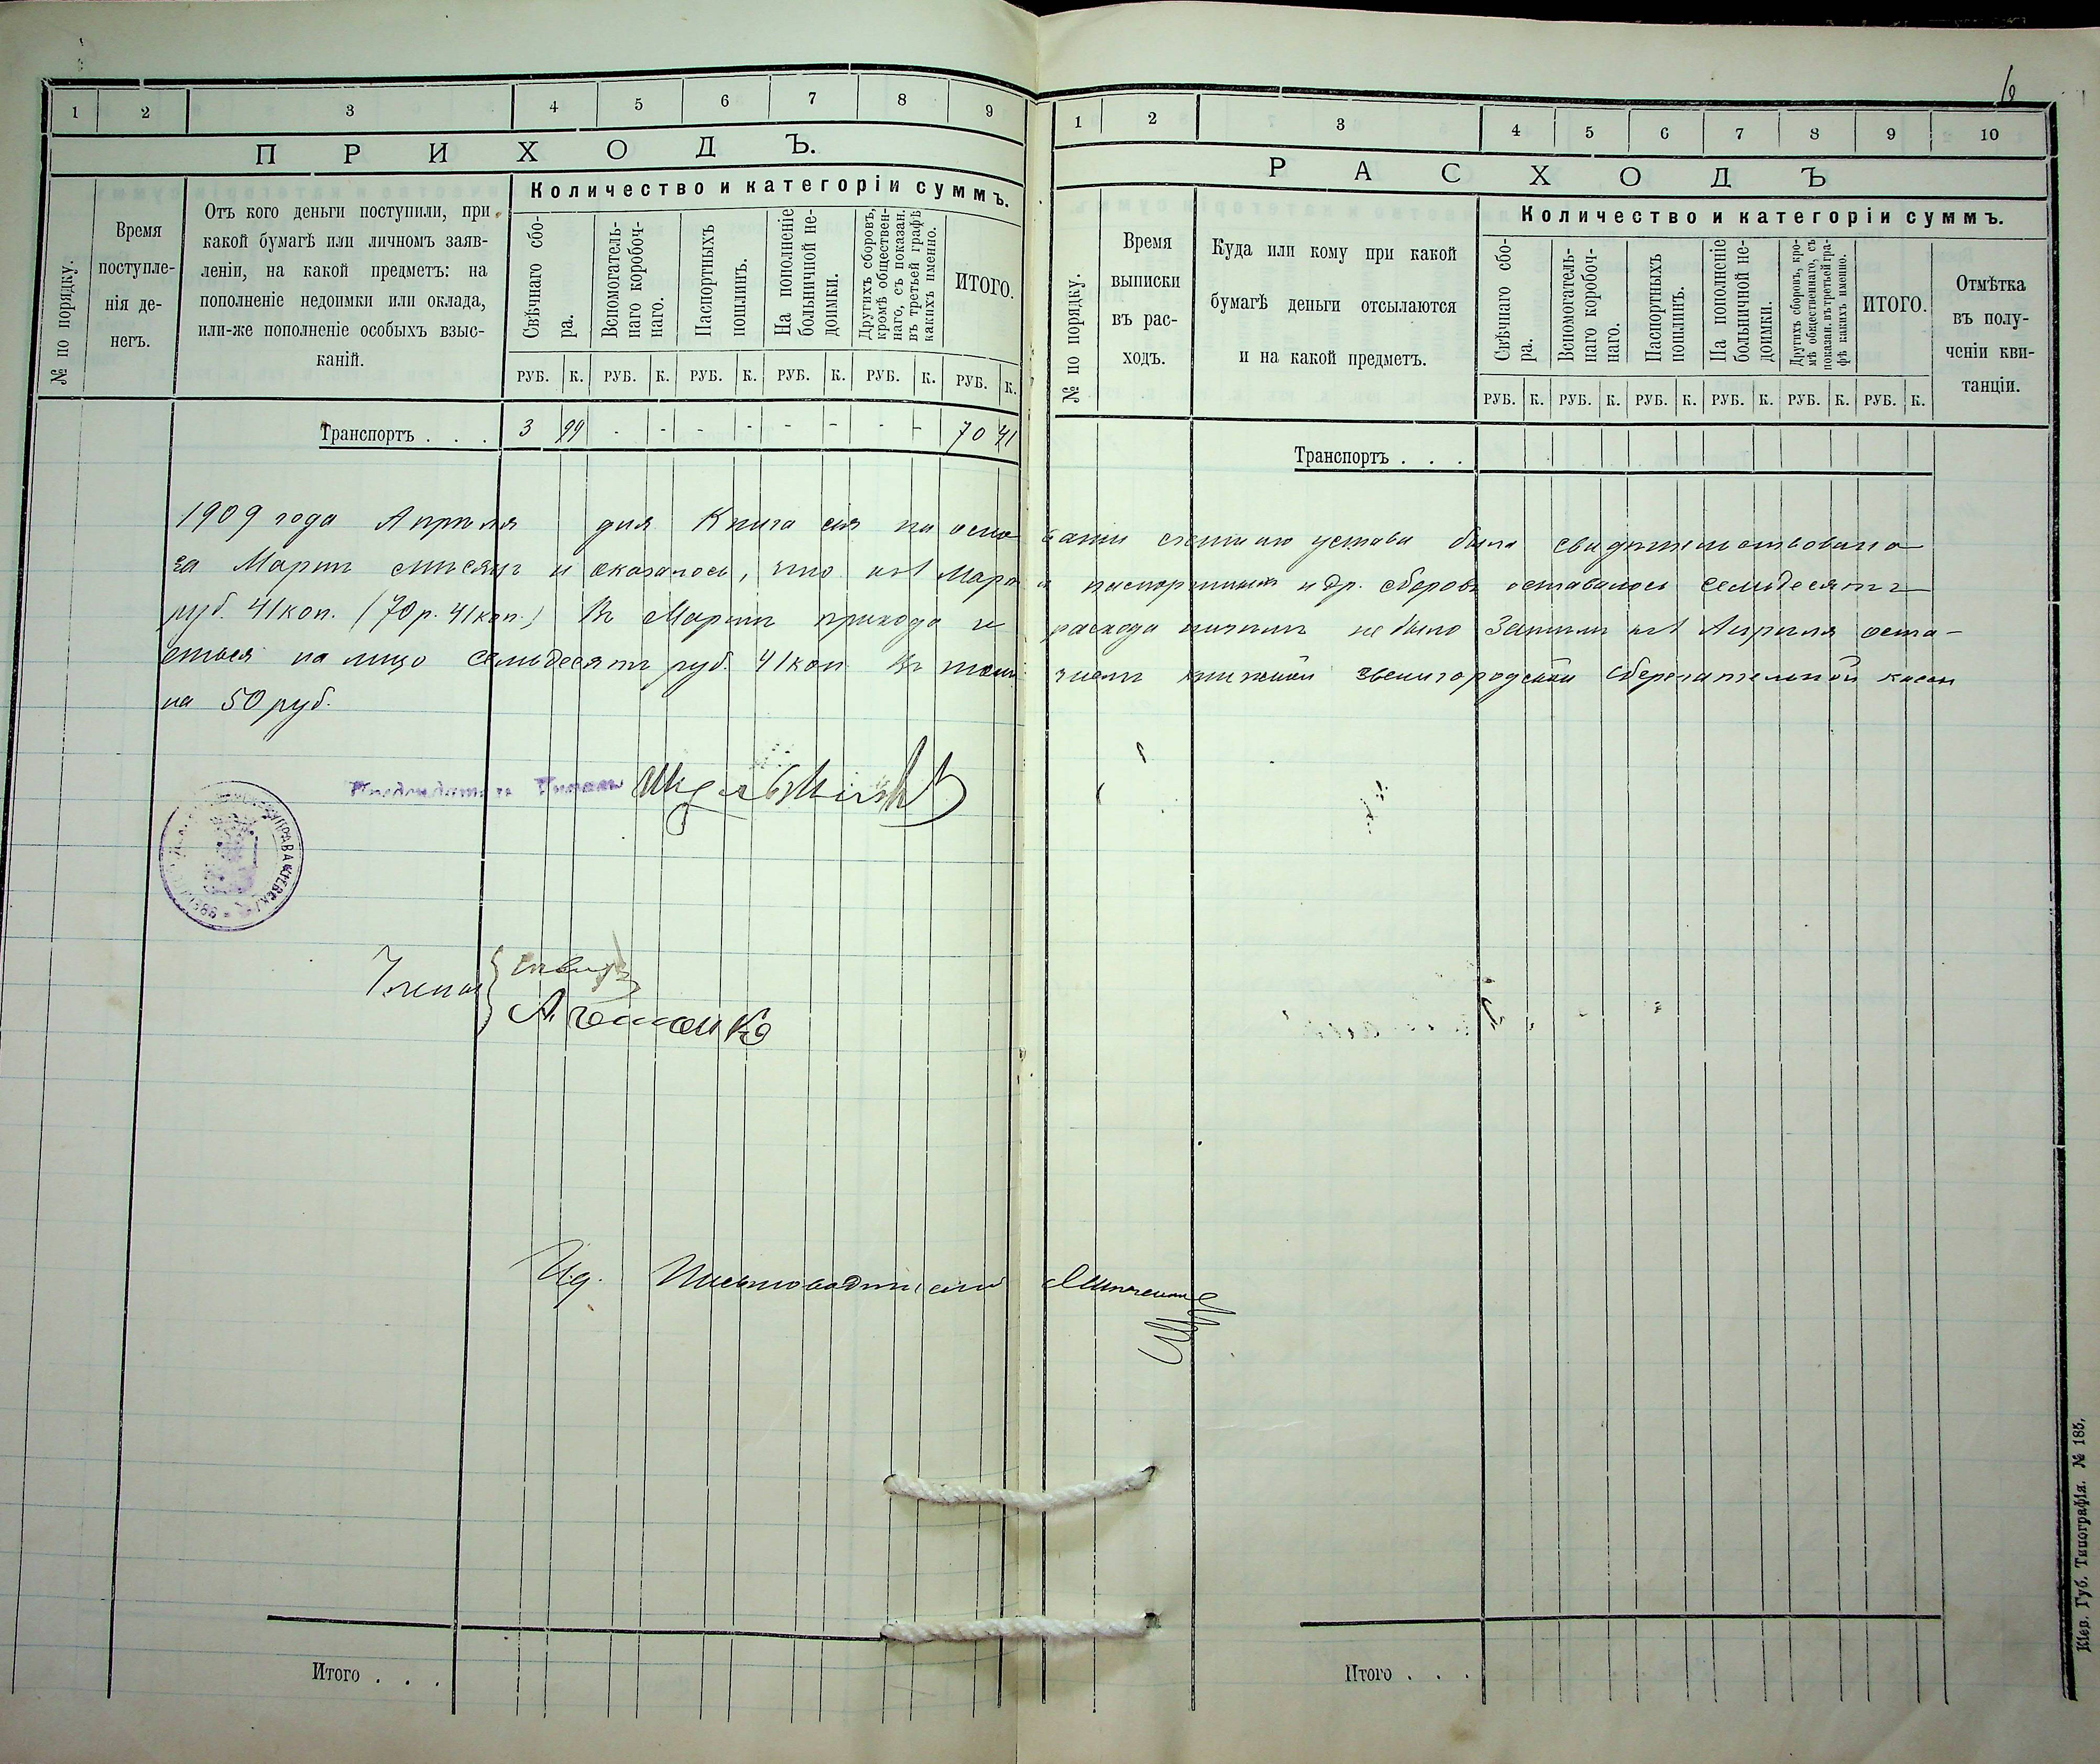 1 2 3 4 5 6 7 8 9
ПРИХОДЪ.
№ по порядку.
Время поступле-
нія де-
негъ.
Отъ кого деньги поступили, при
какой бумагѣ или личномъ заяв-
леніи, на какой предметъ: на
пополненіе недоимки или оклада,
или-же пополненіе особыхъ взыс-
каній.
Количество и категоріи суммъ.
Свѣчнаго сбо-
ра.
Вспомогатель-
наго коробоч-
наго.
Паспортныхъ
пошлинъ.
На пополненіе
больничной не-
доимки.
Другихъ сборовъ,
кромѣ обществен-
наго, съ показан.
въ третьей графѣ
какихъ именно.
ИТОГО.
РУБ. К. РУБ. К. РУБ. К. РУБ. К. РУБ. К. РУБ. К.
Транспортъ . . . 3 99 - - - - - - - - 70 41
1 2 3 4 5 6 7 8 9 10
РАСХОДЪ
№ по порядку.
Время
выписки
въ рас-
ходъ.
Куда или кому при какой
бумагѣ деньги отсылаются
и на какой предметъ.
Количество и категоріи суммъ.
Свѣчнаго сбо-
ра.
Вспомогатель-
наго коробоч-
наго.
Паспортныхъ
пошлинъ.
На пополненіе
больничной не-
доимки.
Другихъ сборовъ, кро-
мѣ общественнаго, съ
показан. въ третьей гра-
фѣ какихъ именно.
ИТОГО.
Отмѣтка
въ полу-
ченіи кви-
танціи.
РУБ. К. РУБ. К. РУБ. К. РУБ. К. РУБ. К. РУБ. К.
Транспортъ . . .
1909 года Апрѣля дня Книга сія на осно ваніи устава была свидѣтельствована
за Мартъ мѣсяцъ и оказалось, что къ 1 Марта паспортныхъ и др. сборовъ оставалось семьдесятъ
руб. 41 коп. (70 р. 41 коп.) Въ Мартѣ прихода и расхода не было Затѣмъ къ 1 Апрѣля оста-
ется на лицо семьдесятъ руб. 41 коп. въ томъ числѣ книжкой Звенигородской сберегательной кассы
на 50 руб.
Члены
И. д. Письмоводителя
Итого . . .
Итого . . .
Кіев. Губ. Типографія. № 185.